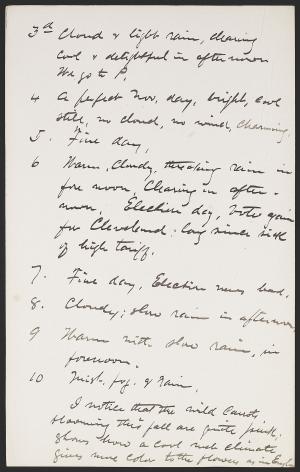 3d Cloud & light rain, clearing
cool & delightful in afternoon
We go to P.
4 A perfect Nov. day, bright, cool
still, no cloud, no wind, charming.
5. Fine day,
6 Warm, Cloudy, threatning rain in
fore noon, Clearing in after-
noon, Election day, Vote again
for Cleveland: long since sick
of high tariff.
7. Fine day, Election news bad.
8. Cloudy; slow rain in afternoon
9 Warm with slow rain, in
forenoon.
10 Mist, fog, & rain,
I notice that the wild carrots
blooming this fall are quite pink;
shows how a cool wet climate
gives more color to the flowers, as in